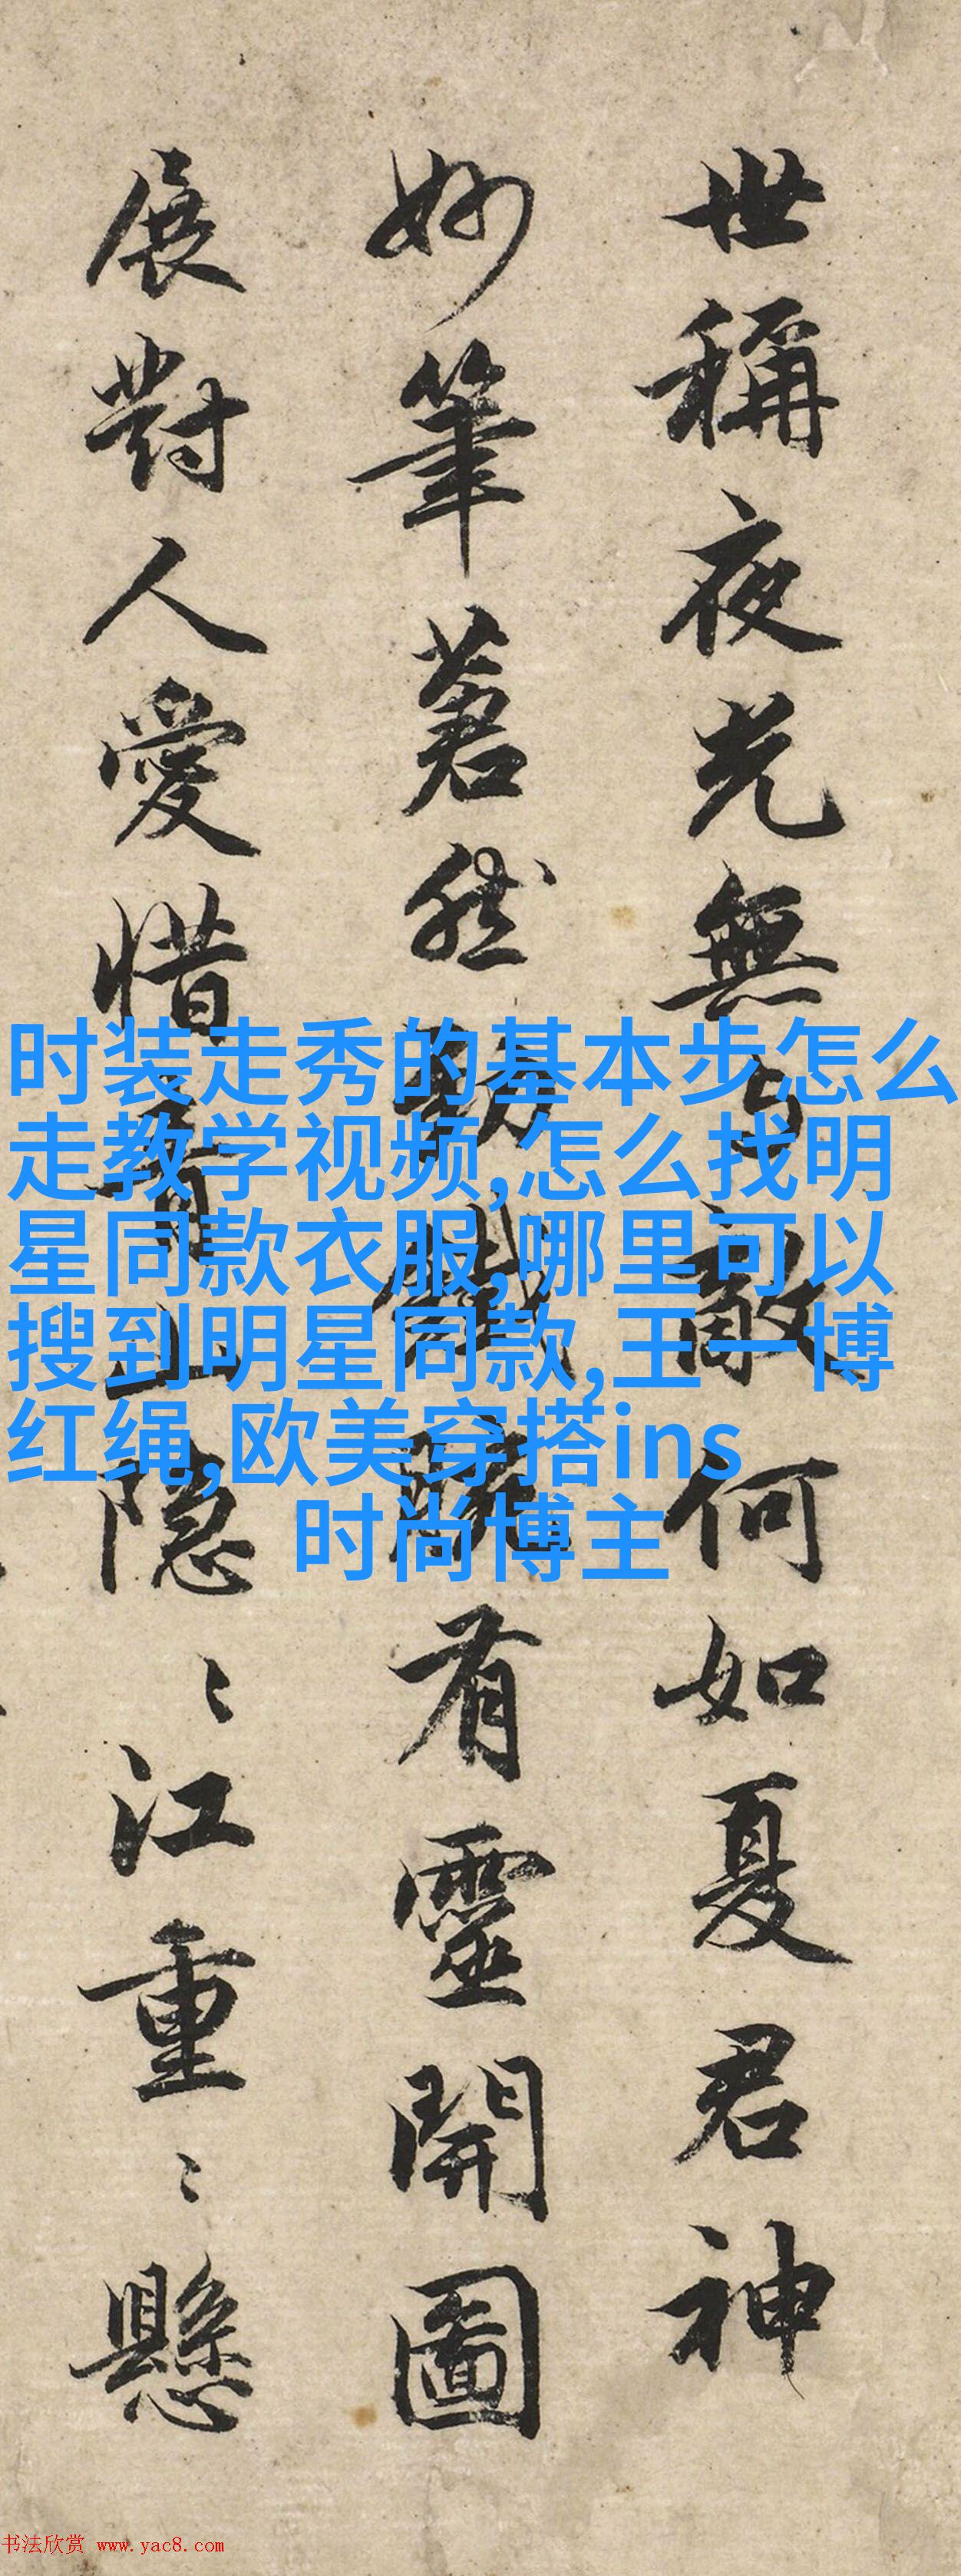 世稱夜光無与敵何如夏君神
妙筆着然動鐵腕有靈開圖
展對人愛惜青山隐〻江重〻懸
时装走秀的基本步怎么
走教学视频,怎么找明
星同款衣服,哪里可以
搜到明星同款,王一博
红绳,欧美穿搭ins
时尚博主
书法欣赏 www.yac8.com